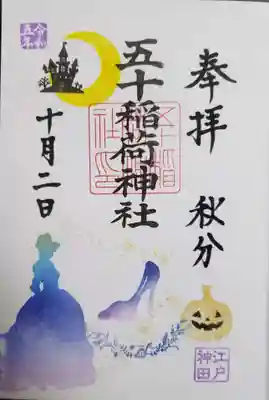 奉拝
秋分
五十稲荷神社
十月二日
令和
五年
江戸
神田